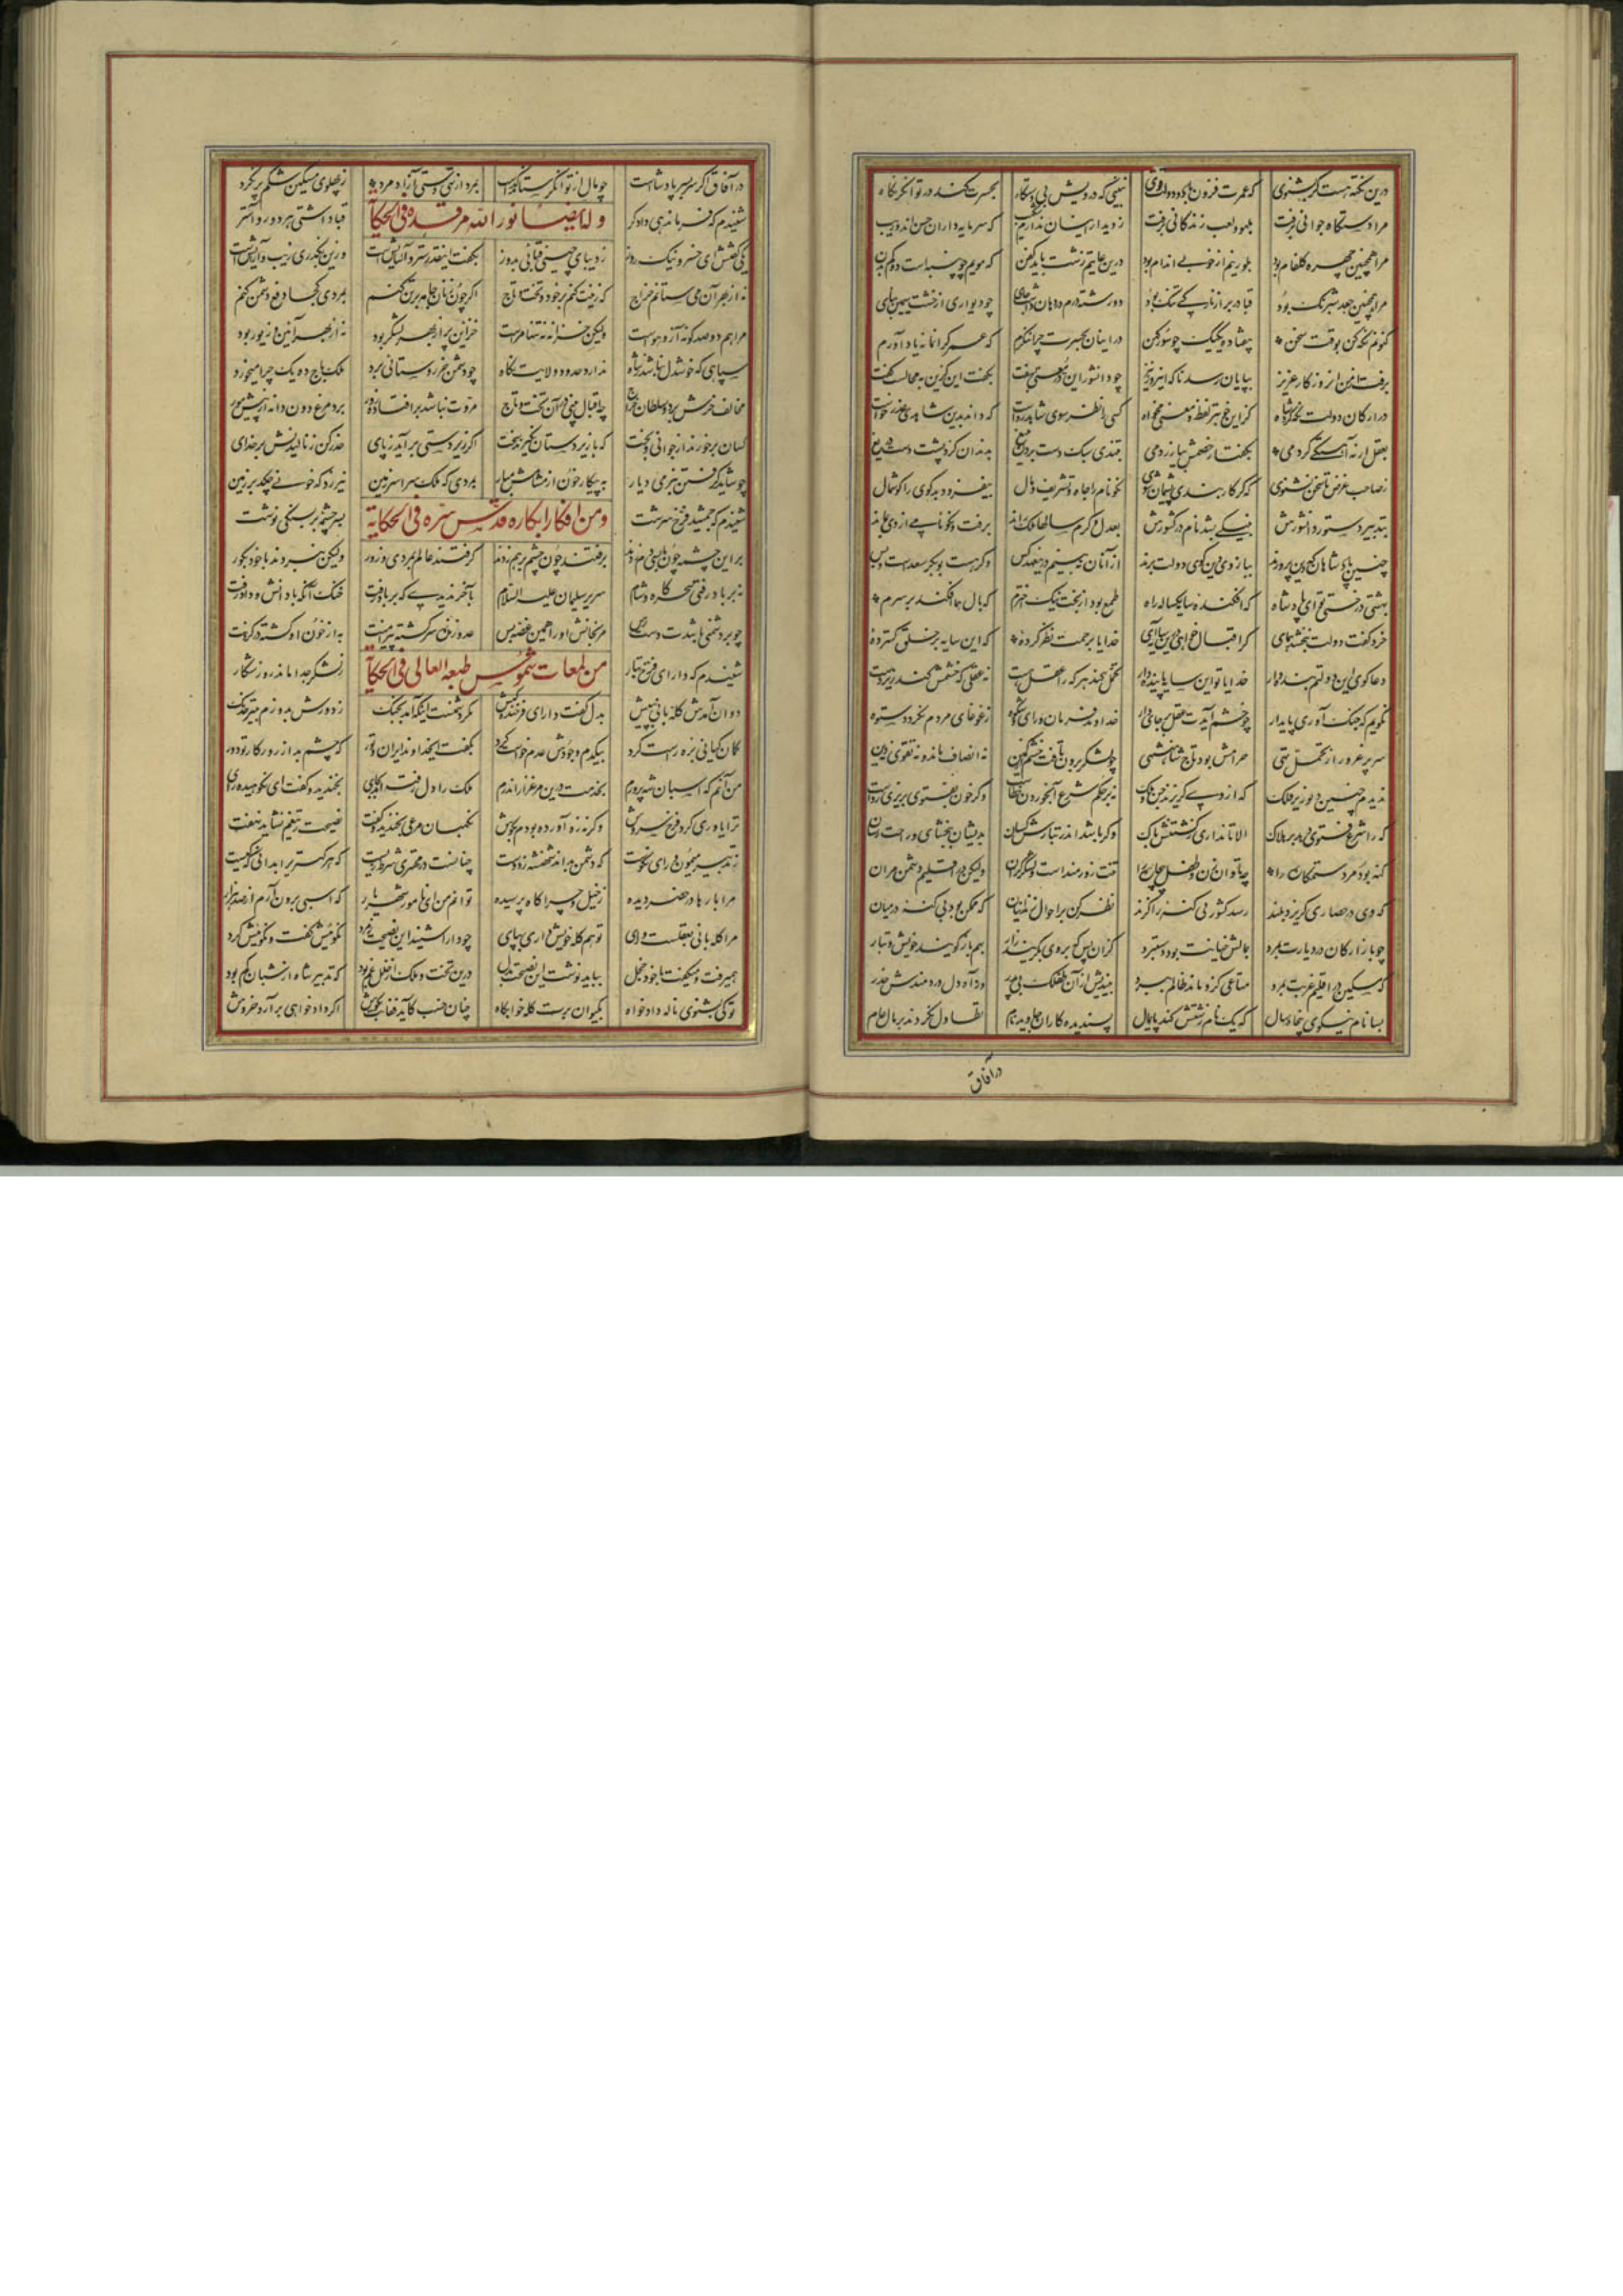 درین نکته هست گر بشنوی که عمرت فزون باد و دولت قوی نبینی که درویش بی دستگاه بحسرت کند در توانگر نگاه
مرا دستگاه جوانی برفت بلهو و لعب زندگانی برفت ز دیدار اینان ندارم شکیب که سرمایه داران حسن اند و زیب
مرا همچنین چهره گلفام بود بلورینم از خوبی اندام بود درین غایتم رشت باید کفن که مویم چو پنبه است و دوکم بدن
مرا همچنین جعد شبرنگ بود قبا در بر از نازکی تنگ بود دو رسته درم در دهان داشت جای چو دیواری از خشت سیمین بپای
کنونم نگه کن بوقت سخن بیفتاده یکیک چو سور کهن در اینان بحسرت چرا ننگرم که عمر گرانمایه یاد آورم
برفت از من آن روزگار عزیز بپایان رسد ناگه این روز نیز چو دانشور این در معنی بسفت بگفت این کزین به محالست گفت
در ارکان دولت نگه کرد شاه کزین خوبتر لفظ و معنی مخواه کسی را نظر سوی شاهد رواست که داند بدین شاهدی عذر خواست
بعقل ار نه آهستگی کردمی بگفتار خصمش بیازردمی بتندی سبک دست بردن بتیغ بدندان گزد پشت دست دریغ
ز صاحب غرض تا سخن نشنوی که گر کار بندی پشیمان شوی نکو نام را جاه و تشریف و مال بیفزود و بدگوی را گوشمال
بتدبیر دستور دانشورش بنیکی بشد نام در کشورش بعدل و کرم سالها ملک راند برفت و نکونامی از وی بماند
چنین پادشاهان که دین پرورند ببازوی دین گوی دولت برند از آنان نبینم درین عهد کس وگر هست بوبکر سعدست و بس
بهشتی درختی تو ای پادشاه که افکنده سایه یکساله راه طمع بود از بخت نیک اخترم که بال هما افکند بر سرم
خرد گفت دولت نبخشد همای گر اقبال خواهی درین سایه آی خدایا برحمت نظر کرده که این سایه بر خلق گسترده
دعا گوی این دولتم بنده وار خدایا تو این سایه پاینده دار تحمل کند هر که را عقل هست نه عقلی که خشمش کند زیردست
نگویم که جنگ آوری پایدار چو خشم آیدت عقل بر جای دار خداوند فرمان و رای و شکوه ز غوغای مردم نگردد ستوه
سر پر غرور از تحمل تهی حرامش بود تاج شاهنشهی چو لشکر برون تاخت خشم از کمین نه انصاف ماند نه تقوی نه دین
ندیدم چنین دیو زیر فلک که از وی گریزند چندین ملک نه بر حکم شرع آب خوردن خطاست وگر خون بفتوی بریزی رواست
کرا شرع فتوی دهد بر هلاک الا تا نداری ز کشتنش باک وگر باشد اندر تبارش کسان بدیشان ببخشای و راحت رسان
گنه بود مرد ستمکاره را چه تاوان زن و طفل بیچاره را تنت زورمند است و لشکر گران ولیکن در اقلیم دشمن مران
که وی در حصاری گریزد بلند رسد کشوری بی گنه را گزند نظر کن بر احوال زندانیان که ممکن بود بی گنه در میان
چو بازارگان در دیارت بمرد بمالش خیانت بود دستبرد کزان پس که بر وی بگریند زار بهم باز گویند خویش و تبار
که مسکین در اقلیم غربت بمرد متاعی کزو ماند ظالم ببرد بیندیش از آن طفلک بی پدر وز آه دل دردمندش حذر
بسا نام نیکوی پنجاه سال که یک نام زشتش کند پایمال پسندیده کاران جاوید نام تطاول نکردند بر مال عام
در آفاق
در آفاق اگر سر بسر پادشاست چو مال از توانگر ستاند گداست بمرد از تهی دستی آزاد مرد ز پهلوی مسکین شکم پر نکرد
شنیدم که فرماندهی دادگر وله ایضا نور الله مرقده فی الحکایة قبا داشتی هر دو رو آستر
یکی گفتش ای خسرو نیک روز ز دیبای چینی قبایی بدوز بگفت اینقدر ستر و آسایش است وزین بگذری زیب و آرایش است
نه از بهر آن می ستانم خراج که زینت کنم بر خود و تخت و تاج اگر چون زنان جامه بر تن کنم بمردی کجا دفع دشمن کنم
مرا هم دو صد گونه آز و هوست ولیکن خزانه نه تنها مرست خزاین پر از بهر لشکر بود نه از بهر آئین و زیور بود
سپاهی که خوشدل نباشد ز شاه ندارد حدود ولایت نگاه چو دشمن خر روستائی برد ملک باج و ده یک چرا میخورد
مخالف خرش برد و سلطان خراج چه اقبال بینی در آن تخت و تاج مروت نباشد بر افتاده زور برد مرغ دون دانه از پیش مور
کسان برخورند از جوانی و بخت که با زیردستان نگیرند سخت اگر زیردستی برآید ز پای حذر کن ز نالیدنش بر خدای
چو شاید گرفتن بنرمی دیار به پیکار خون از مشامش میار بمردی که ملک سراسر زمین نیرزد که خونی چکد بر زمین
شنیدم که جمشید فرخ سرشت ومن افکار ابکاره قدس سره فی الحکایة بسرچشمه بر بسنگی نوشت
برین چشمه چون ما بسی دم زدند برفتند چون چشم برهم زدند گرفتند عالم بمردی و زور ولیکن نبردند با خود بگور
نه بر باد رفتی سحرگاه و شام سریر سلیمان علیه السلام بآخر ندیدی که بر باد رفت خنک آنکه با دانش و داد رفت
چو بر دشمنی باشدت دسترس مرنجانش او را همین غصه بس عدو زنده سرگشته پیرامنت به از خون او کشته در گردنت
شنیدم که دارای فرخ تبار من لمعات شموس طبعه العالی فی الحکایة ز لشکر جدا ماند روز شکار
دوان آمدش گله بانی به پیش بدل گفت دارای فرخنده کیش مگر دشمنست اینکه آمد بجنگ ز دورش بدوزم بتیر خدنگ
کمان کیانی بزه راست کرد بیکدم وجودش عدم خواست کرد بگفت ای خداوند ایران و تور که چشم بد از روزگار تو دور
من آنم که اسبان شه پرورم بخدمت درین مرغزار اندرم ملک را دل رفته آمد بجای بخندید و گفت ای نکوهیده رای
ترا یاوری کرد فرخ سروش وگرنه زه آورده بودم بگوش نگهبان مرعی بخندید و گفت نصیحت ز منعم نشاید نهفت
نه تدبیر میمون و رای نکوست که دشمن نداند شهنشه ز دوست چنانست در مهتری شرط زیست که هر کهتری را بدانی که کیست
مرا بارها در حضر دیده ز خیل و چراگاه پرسیده توانم من ای نامور شهریار که اسبی برون آرم از صد هزار
مرا گله بانی بعقلست و رای تو هم گله خویش داری بپای چو دارا شنید این نصیحت ز مرد نکوئیش گفت و نکوئیش کرد
همیرفت و میگفت با خود خجل بباید نوشت این نصیحت بدل درین تخت و ملک از خلل غم بود که تدبیر شاه از شبان کم بود
تو کی بشنوی ناله دادخواه بکیوان برت کله خوابگاه چنان خسب کاید فغانت بگوش اگر دادخواهی برآرد خروش